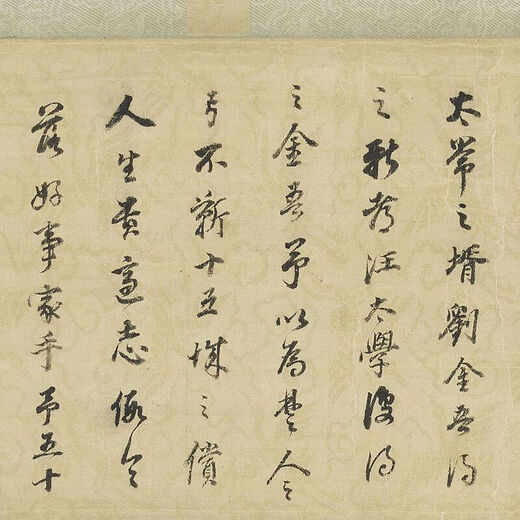 太常之壻劉金吾得
之新都汪太學復得
之金吾予以為楚人之
弓不靳十五城之償
人生貴適志假令
落好事家手予五十